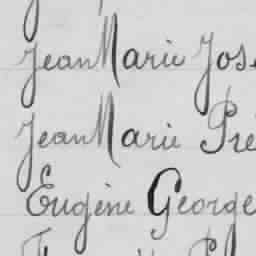 Jean Marie Jos
Jean Marie Pré
Eugène George